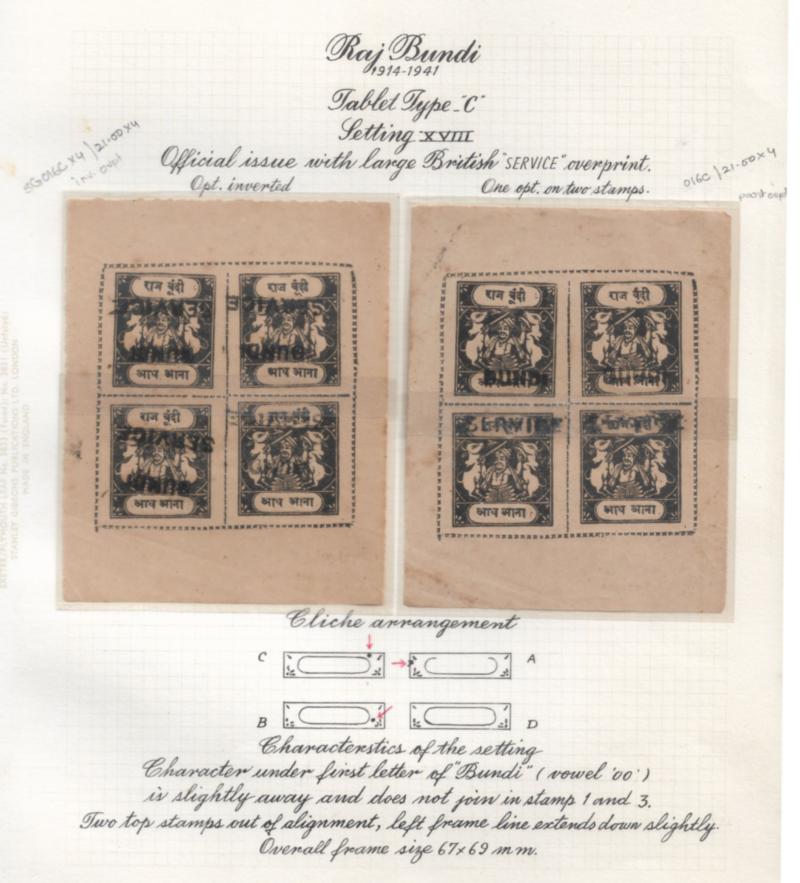 Raj Bundi
1914-1941
Tablet Type "C"
Setting XVIII
Official issue with large British "SERVICE" overprint.
SG 016C x4 / 21-00 x4
inv. ovpt
Opt. inverted
One opt. on two stamps.
016C / 21-00 x4
राज बूंदी
SERVICE
BUNDI
आध आना
राज बूंदी
SERVICE
BUNDI
आध आना
राज बूंदी
SERVICE
BUNDI
आध आना
राज बूंदी
आध आना
राज बूंदी
BUNDI
आध आना
राज बूंदी
BUNDI
आध आना
SERVICE
राज बूंदी
आध आना
राज बूंदी
आध आना
STANLEY GIBBONS PUBLICATIONS LTD. LONDON
MADE IN ENGLAND
Cliche arrangement
C
A
B
D
Characterstics of the setting
Character under first letter of "Bundi" (vowel 'oo')
is slightly away and does not join in stamp 1 and 3.
Two top stamps out of alignment, left frame line extends down slightly.
Overall frame size 67x69 mm.